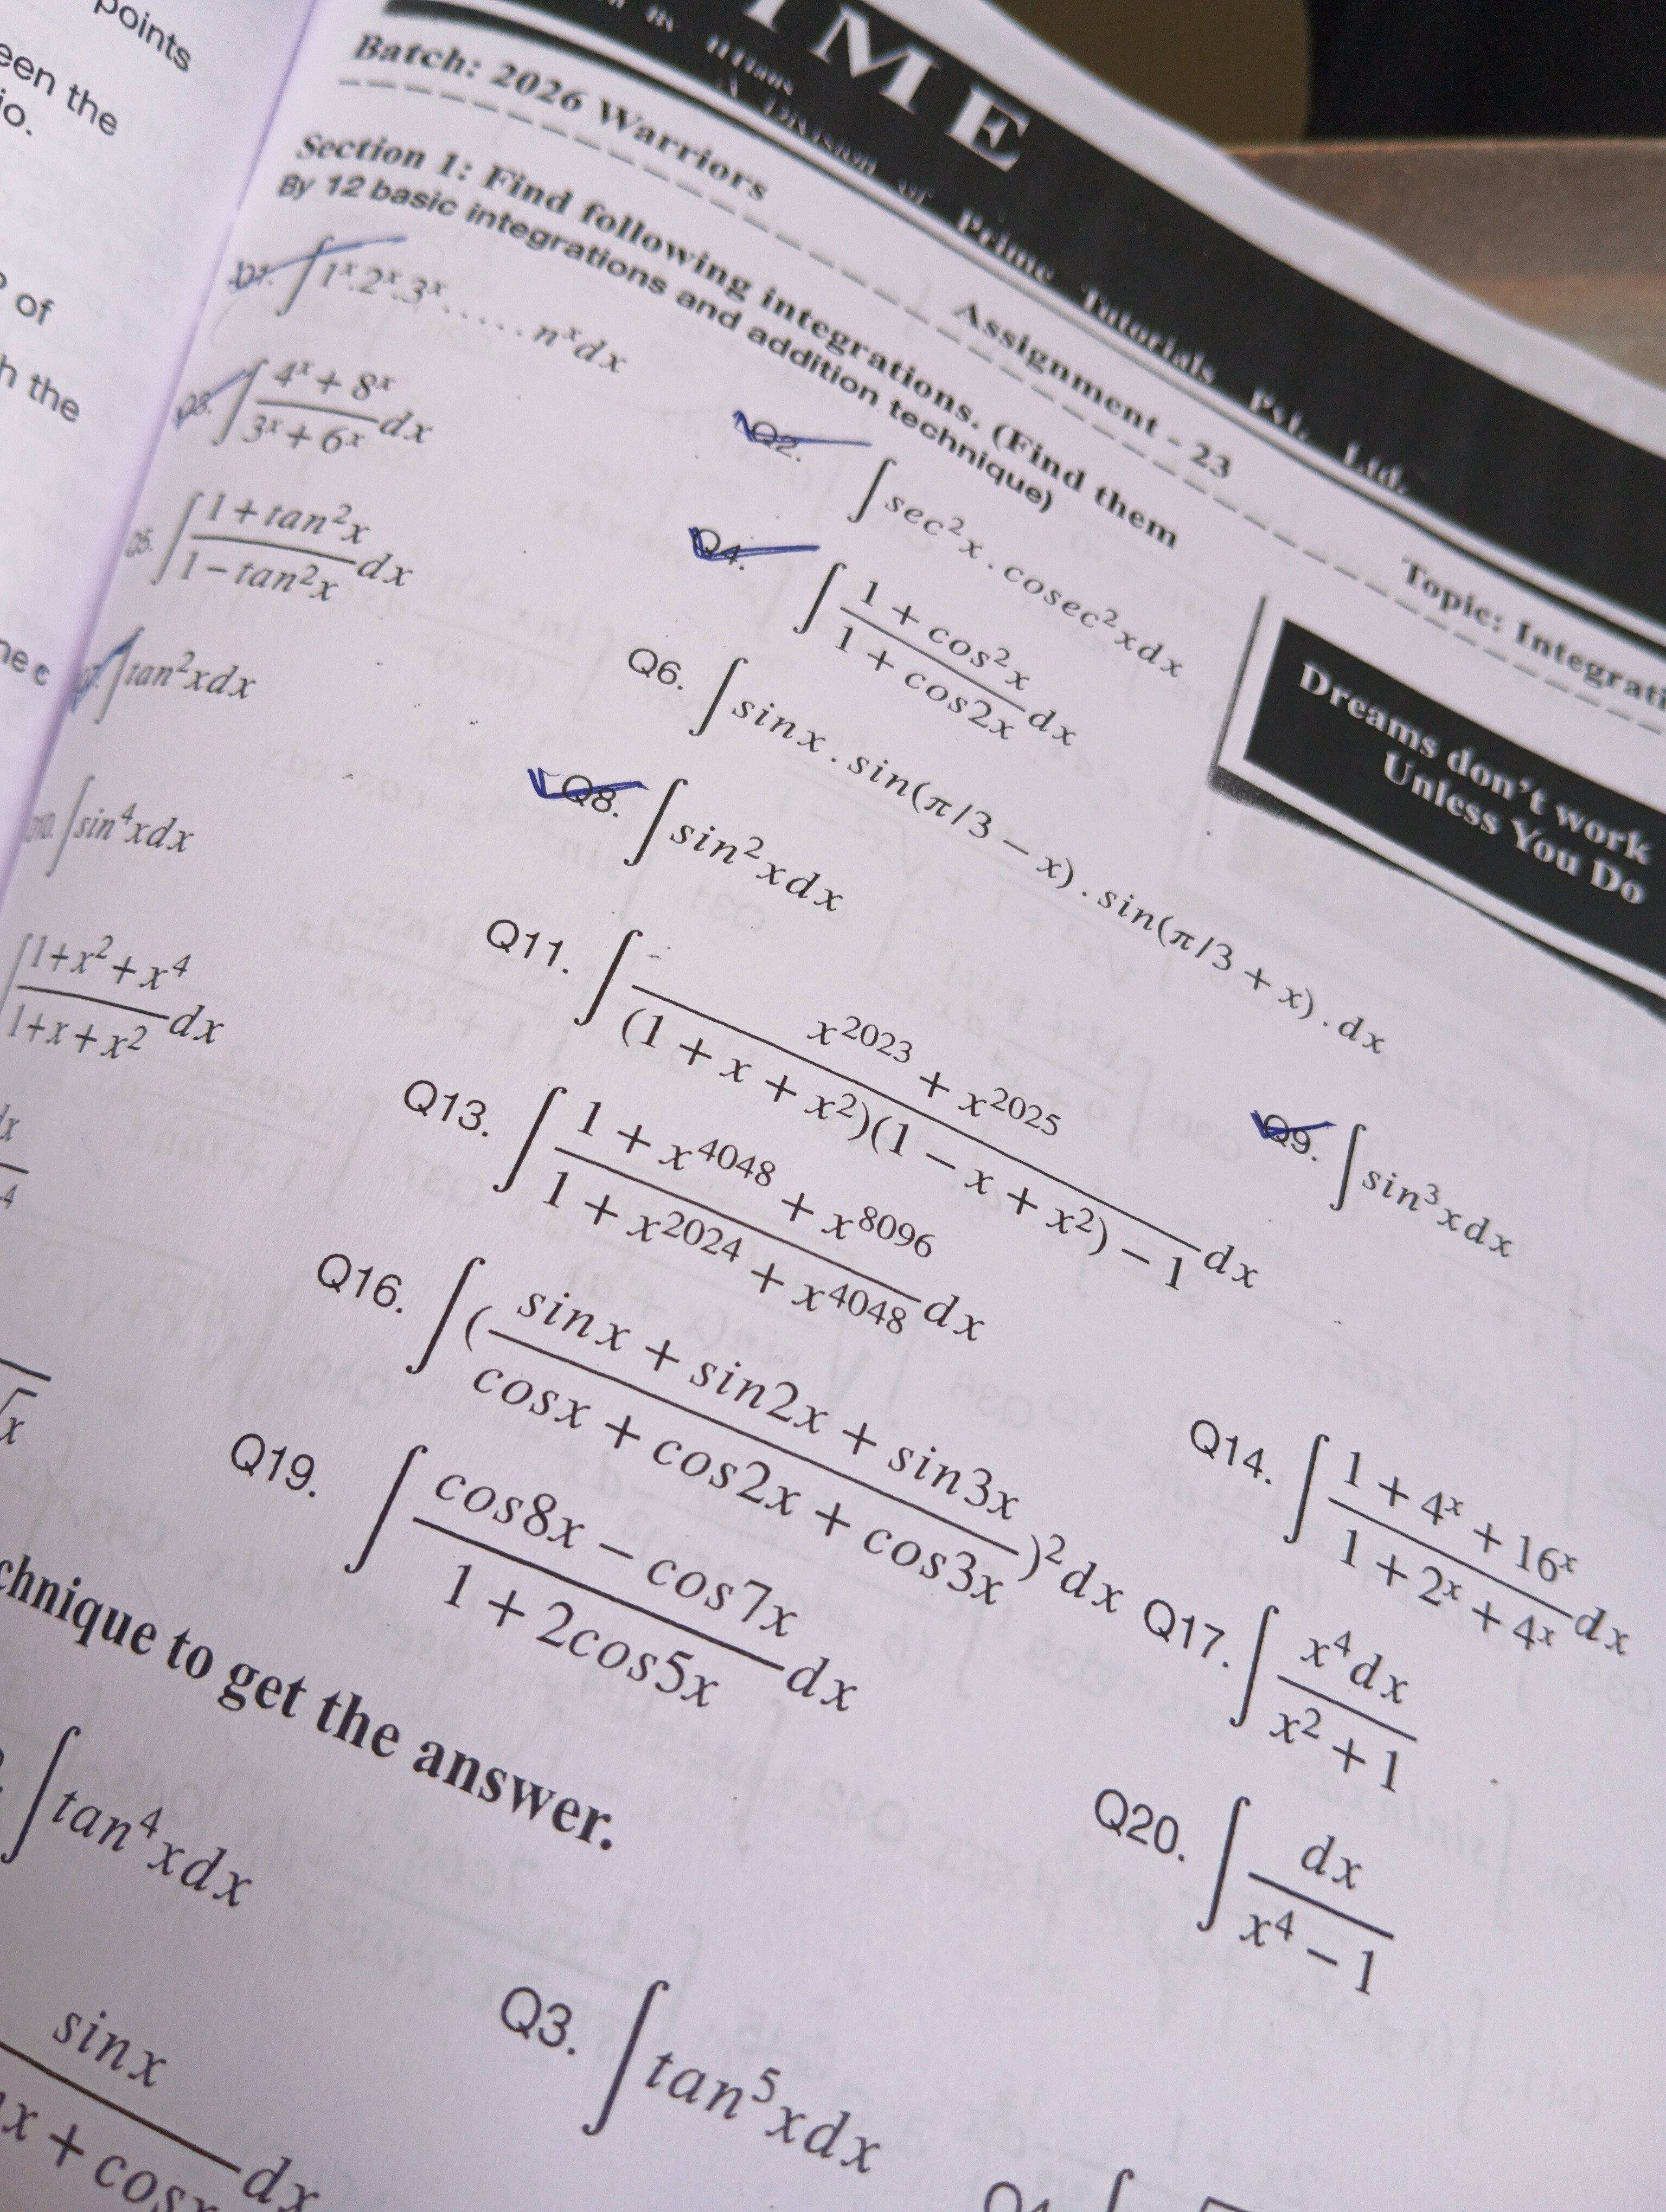 points
een the
io.
of
h the
IME
A Division of Prime Tutorials Pvt. Ltd.
Batch: 2026 Warriors
Assignment - 23
Topic: Integrati
Section 1: Find following integrations. (Find them
By 12 basic integrations and addition technique)
Dreams don't work
Unless You Do
Q1. ∫ 1^x.2^x.3^x......n^x dx
Q2. ∫ sec²x.cosec²xdx
Q3. ∫ (4^x + 8^x)/(3^x + 6^x) dx
Q4. ∫ (1 + cos²x)/(1 + cos2x) dx
Q5. ∫ (1 + tan²x)/(1 − tan²x) dx
Q6. ∫ sinx.sin(π/3 − x).sin(π/3 + x).dx
Q7. ∫ tan²xdx
Q8. ∫ sin²xdx
Q9. ∫ sin³xdx
Q10. ∫ sin⁴xdx
Q11. ∫ (x^2023 + x^2025)/((1 + x + x²)(1 − x + x²) − 1) dx
∫ (1+x²+x⁴)/(1+x+x²) dx
Q13. ∫ (1 + x^4048 + x^8096)/(1 + x^2024 + x^4048) dx
Q14. ∫ (1 + 4^x + 16^x)/(1 + 2^x + 4^x) dx
Q16. ∫ ((sinx + sin2x + sin3x)/(cosx + cos2x + cos3x))² dx
Q17. ∫ x⁴dx/(x² + 1)
Q19. ∫ (cos8x − cos7x)/(1 + 2cos5x) dx
Q20. ∫ dx/(x⁴ − 1)
chnique to get the answer.
∫ tan⁴xdx
Q3. ∫ tan⁵xdx
sinx
x + cosx dx